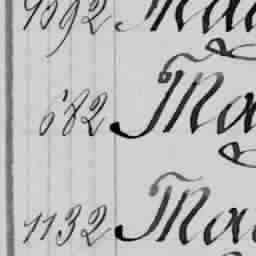 1592 Ma
682 Ma
1132 Ma